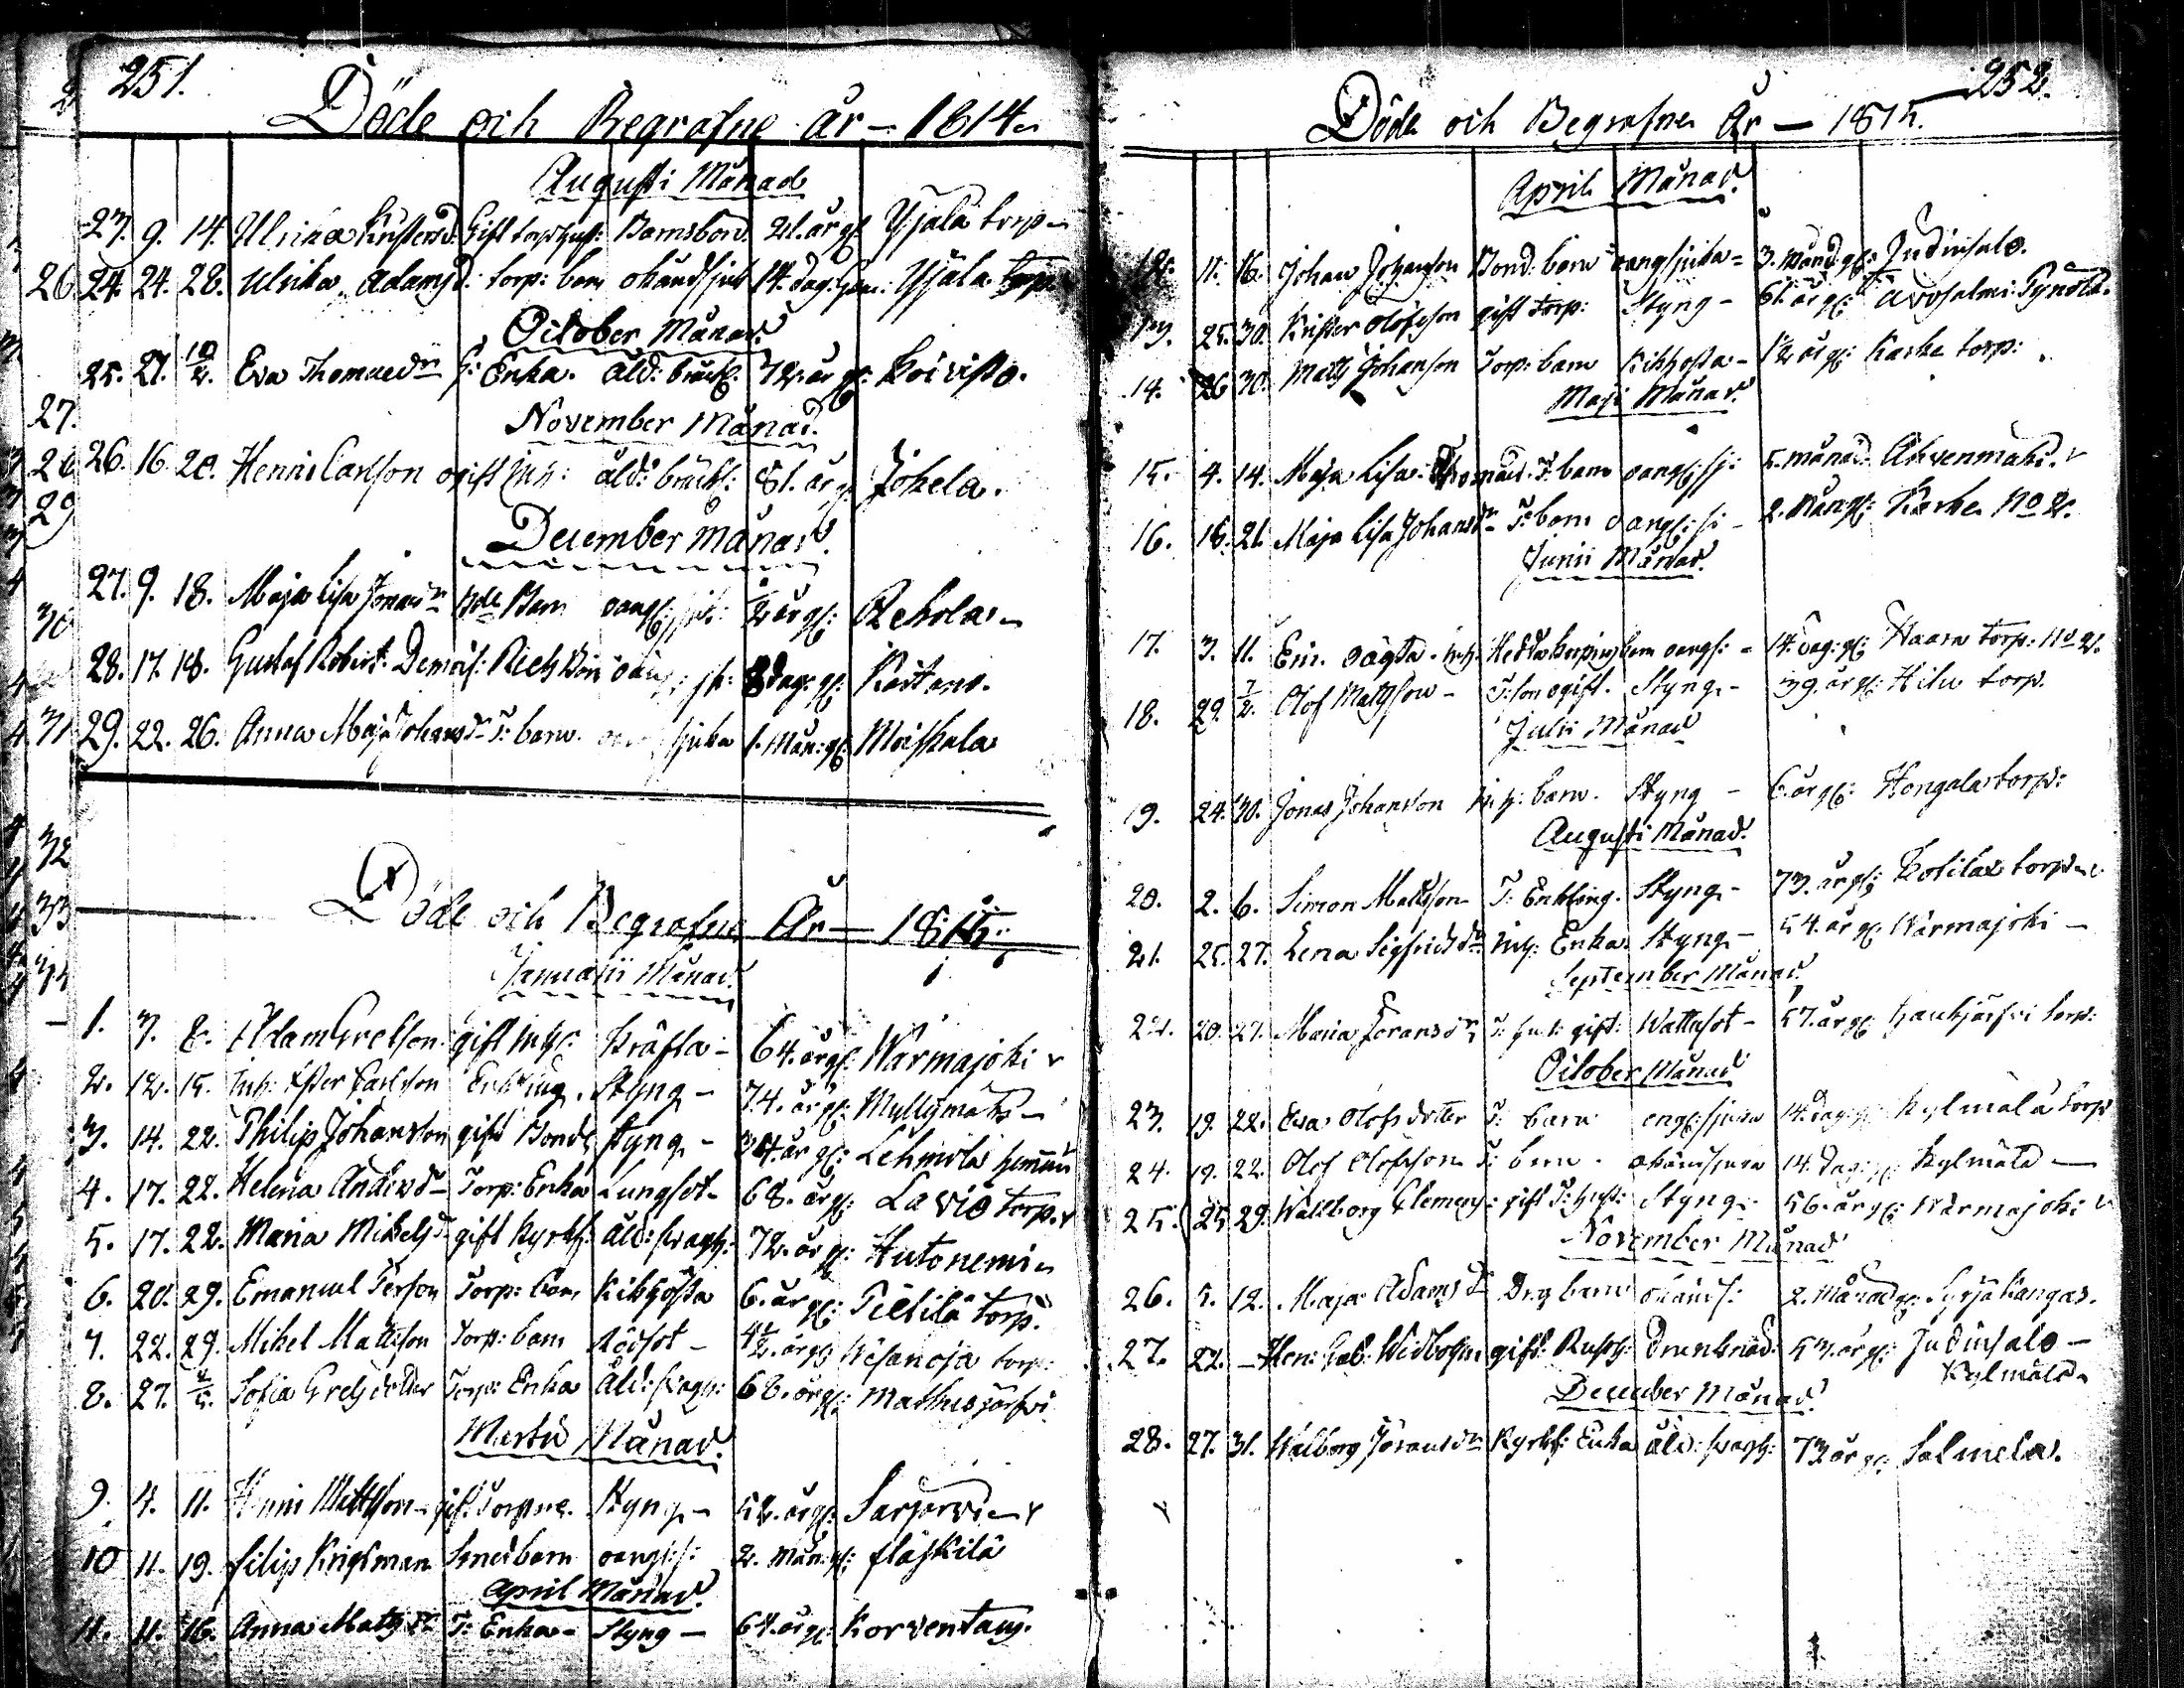 251.
Döde och Begrafne år - 1814.
Augusti Månad
23. 9. 14. Ulrika Kristersd. Gift torp hust: Barnsbörd 21. år gl: Yjälä torp
26 24. 24. 28. Ulrika Adamsd: torp: barn okänd sjuk 14. dag. gam: Yjälä torp
October Månad
25. 27. 10/2. Eva Thomaedr Enka. åld: bräckl: 72. år gl: Koivisto.
27.
November Månad.
28 26. 16. 20. Henric Carlson ogift inh: åld: bräckl: 81. år gl Jokela.
29
December Månad.
30 27. 9. 18. Maja Lisa Jonaedr Bde Barn oangl: sjk: 2 år gl: Rekola
28. 17. 18. Gustaf Robert. Demois: Rech Barn oang: sk: 8 dag: gl: Kartano.
31 29. 22. 26. Anna Maja Johansdr T: barn. sjuka 1. Mån: gl: Moiskala
32
33
Döde och Begrafne År - 1815.
Januarii Månad.
1. 3. 8. Adam Gretson gift Inhs: Kräfta - 64. år gl: Warmajoki
2. 12. 15. Inh: Ester Carlson Enkling. Styng - 74. år gl: Myllymäki -
3. 14. 22. Philip Johanson gift Bonde Styng - 34. år gl: Lehmola hemman
4. 17. 22. Helena Andersdr Torp: Enka Lungsot - 68. år gl: Lavio torp.
5. 17. 22. Maria Mikelsdr gift Kyrkh: åld: swagh: 72. år gl: Hutonemi
6. 20. 29. Emanuel Person Torp: barn Kikhosta 6. år gl: Pietilä torp.
7. 22. 29. Mikel Mattson Torp: barn Rödsot - 4 1/2. år gl: Wäsänoja torp:
8. 27. 2/5. Sofia Gretsdotter Torp: Enka Åld: swagh: 68. år gl: Mathisjärfvi
Martii Månad.
9. 4. 11. Henric Mattson gift Torpare. Styng - 52. år gl: Sarjarvi
10 11. 19. Filip Krigsman Smedbarn oangl: s: 2. Mån: gl: Fläskilä
April Månad.
11. 11. 16. Anna Matsdr T: Enka - Styng - 64. år gl: Korventaus.
252.
Döde och Begrafne År - 1815.
April Månad.
12. 11. 16. Johan Johanson Bond: barn oang sjuka - 3. Månd: gl: Judinsalo.
13. 25. 30. Krister Olofsson gift Torp: Styng - 61. år gl: Arvosalmi: Pynölä.
14. 26 30. Mats Johanson Torp: barn Kikhosta - 1 1/2 år gl: Karke torp:
Maji Månad.
15. 4. 14. Maja Lisa: Thomaed. T: barn oangl: sj: 5. månad: Ahvenmäki.
16. 18. 21. Maja Lisa Johansdr T: barn oangl: s: - 2. Mån gl: Karke No 2.
Junii Månad.
17. 3. 11. Eric oägta. inh: Hedda barn oangs: - 14. dag: gl: Haara torp: No 2.
18. 29. 7/2. Olof Mattson - T: son ogift. Styng - 39. år gl: Hilu torp.
Julii Månad
19. 24. 30. Jonas Johanson inh: barn. Styng - 6. år gl: Hongala torp:
Augusti Månad.
20. 2. 6. Simon Mattson T: Enkling. Styng - 73. år gl: Kotila torp
21. 25. 27. Lena Sigfridsdr Inh: Enka Styng - 54. år gl: Warmajoki -
September Månad.
22. 20. 27. Maria Joransdr T: hust: gift: Wattusot - 57. år gl Haukijärfvi torp:
October Månad
23. 19. 22. Eva Olofsdotter T: barn sjuka 14. dag: gl Kylmälä torp
24. 19. 22. Olof Olofsson T: barn. okänd sjuka 14. dag: gl: Kylmälä -
25. 25 29. Wallborg Clemens: gift T: hust: Styng. 56. år gl: Warmajoki
November Månad
26. 5. 12. Maja Adamsdr Drg barn okänd s: 2. Månad gl: Syrjäkangas.
27. 22. - Hen: Gab: Widbohm gift Rusth: drunknad. 53. år gl: Judinsalo - Kylmälä
December Månad.
28. 27. 31. Walborg Joransdr Kyrkh: Enka åld: swagh: 73 år gl: Salmela.